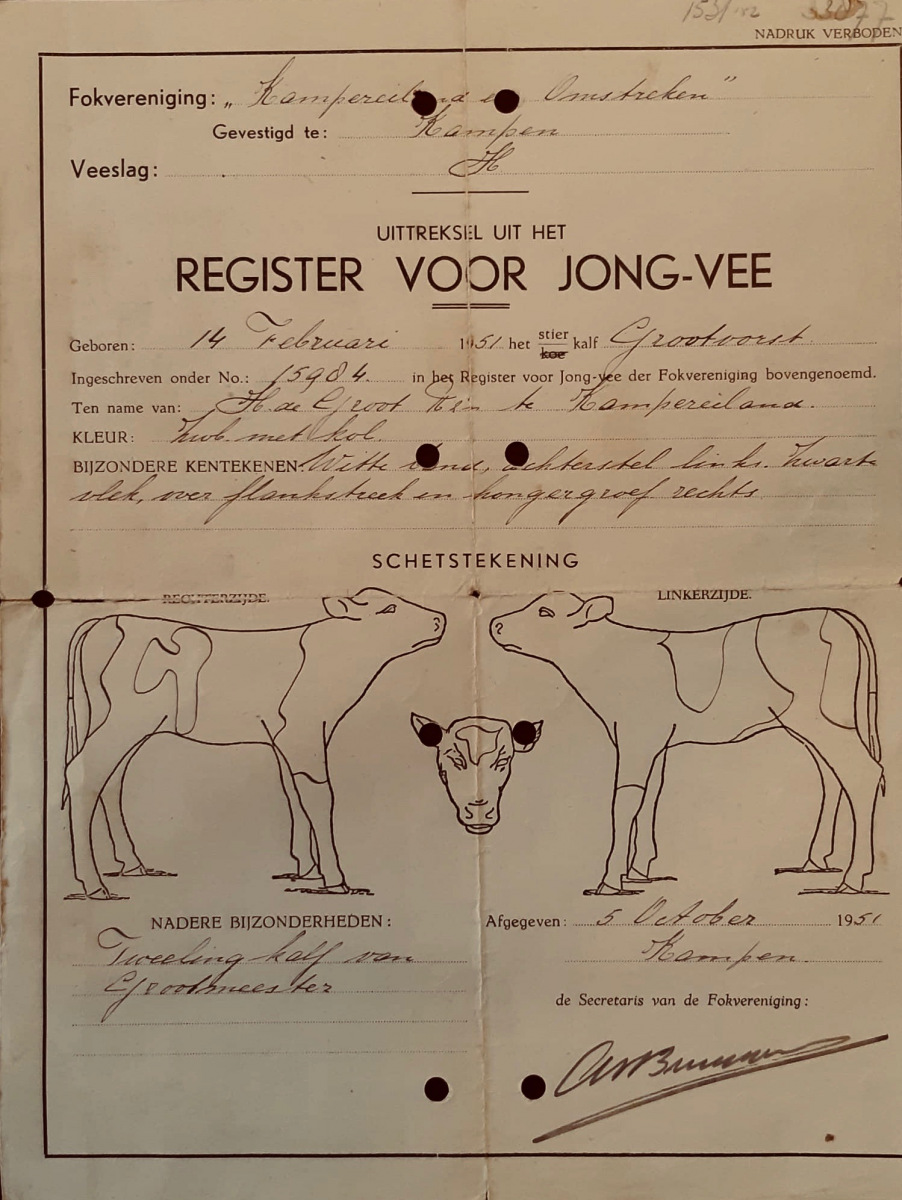 153/182 33877
NADRUK VERBODEN
Fokvereniging: „Kampereiland en Omstreken”
Gevestigd te: Kampen
Veeslag: H
UITTREKSEL UIT HET
REGISTER VOOR JONG-VEE
Geboren: 14 Februari 1951 het stier/koe kalf Grootvorst
Ingeschreven onder No.: 15984. in het Register voor Jong-vee der Fokvereniging bovengenoemd.
Ten name van: H. de Groot te Kampereiland.
KLEUR: zwb. met kol.
BIJZONDERE KENTEKENEN: Witte band, achterstel links. Zwarte
vlek, over flankstreek en hongergroef rechts
SCHETSTEKENING
RECHTERZIJDE. LINKERZIJDE.
NADERE BIJZONDERHEDEN:
Tweeling kalf van
Grootmeester
Afgegeven: 5 October 1951
Kampen.
de Secretaris van de Fokvereniging: